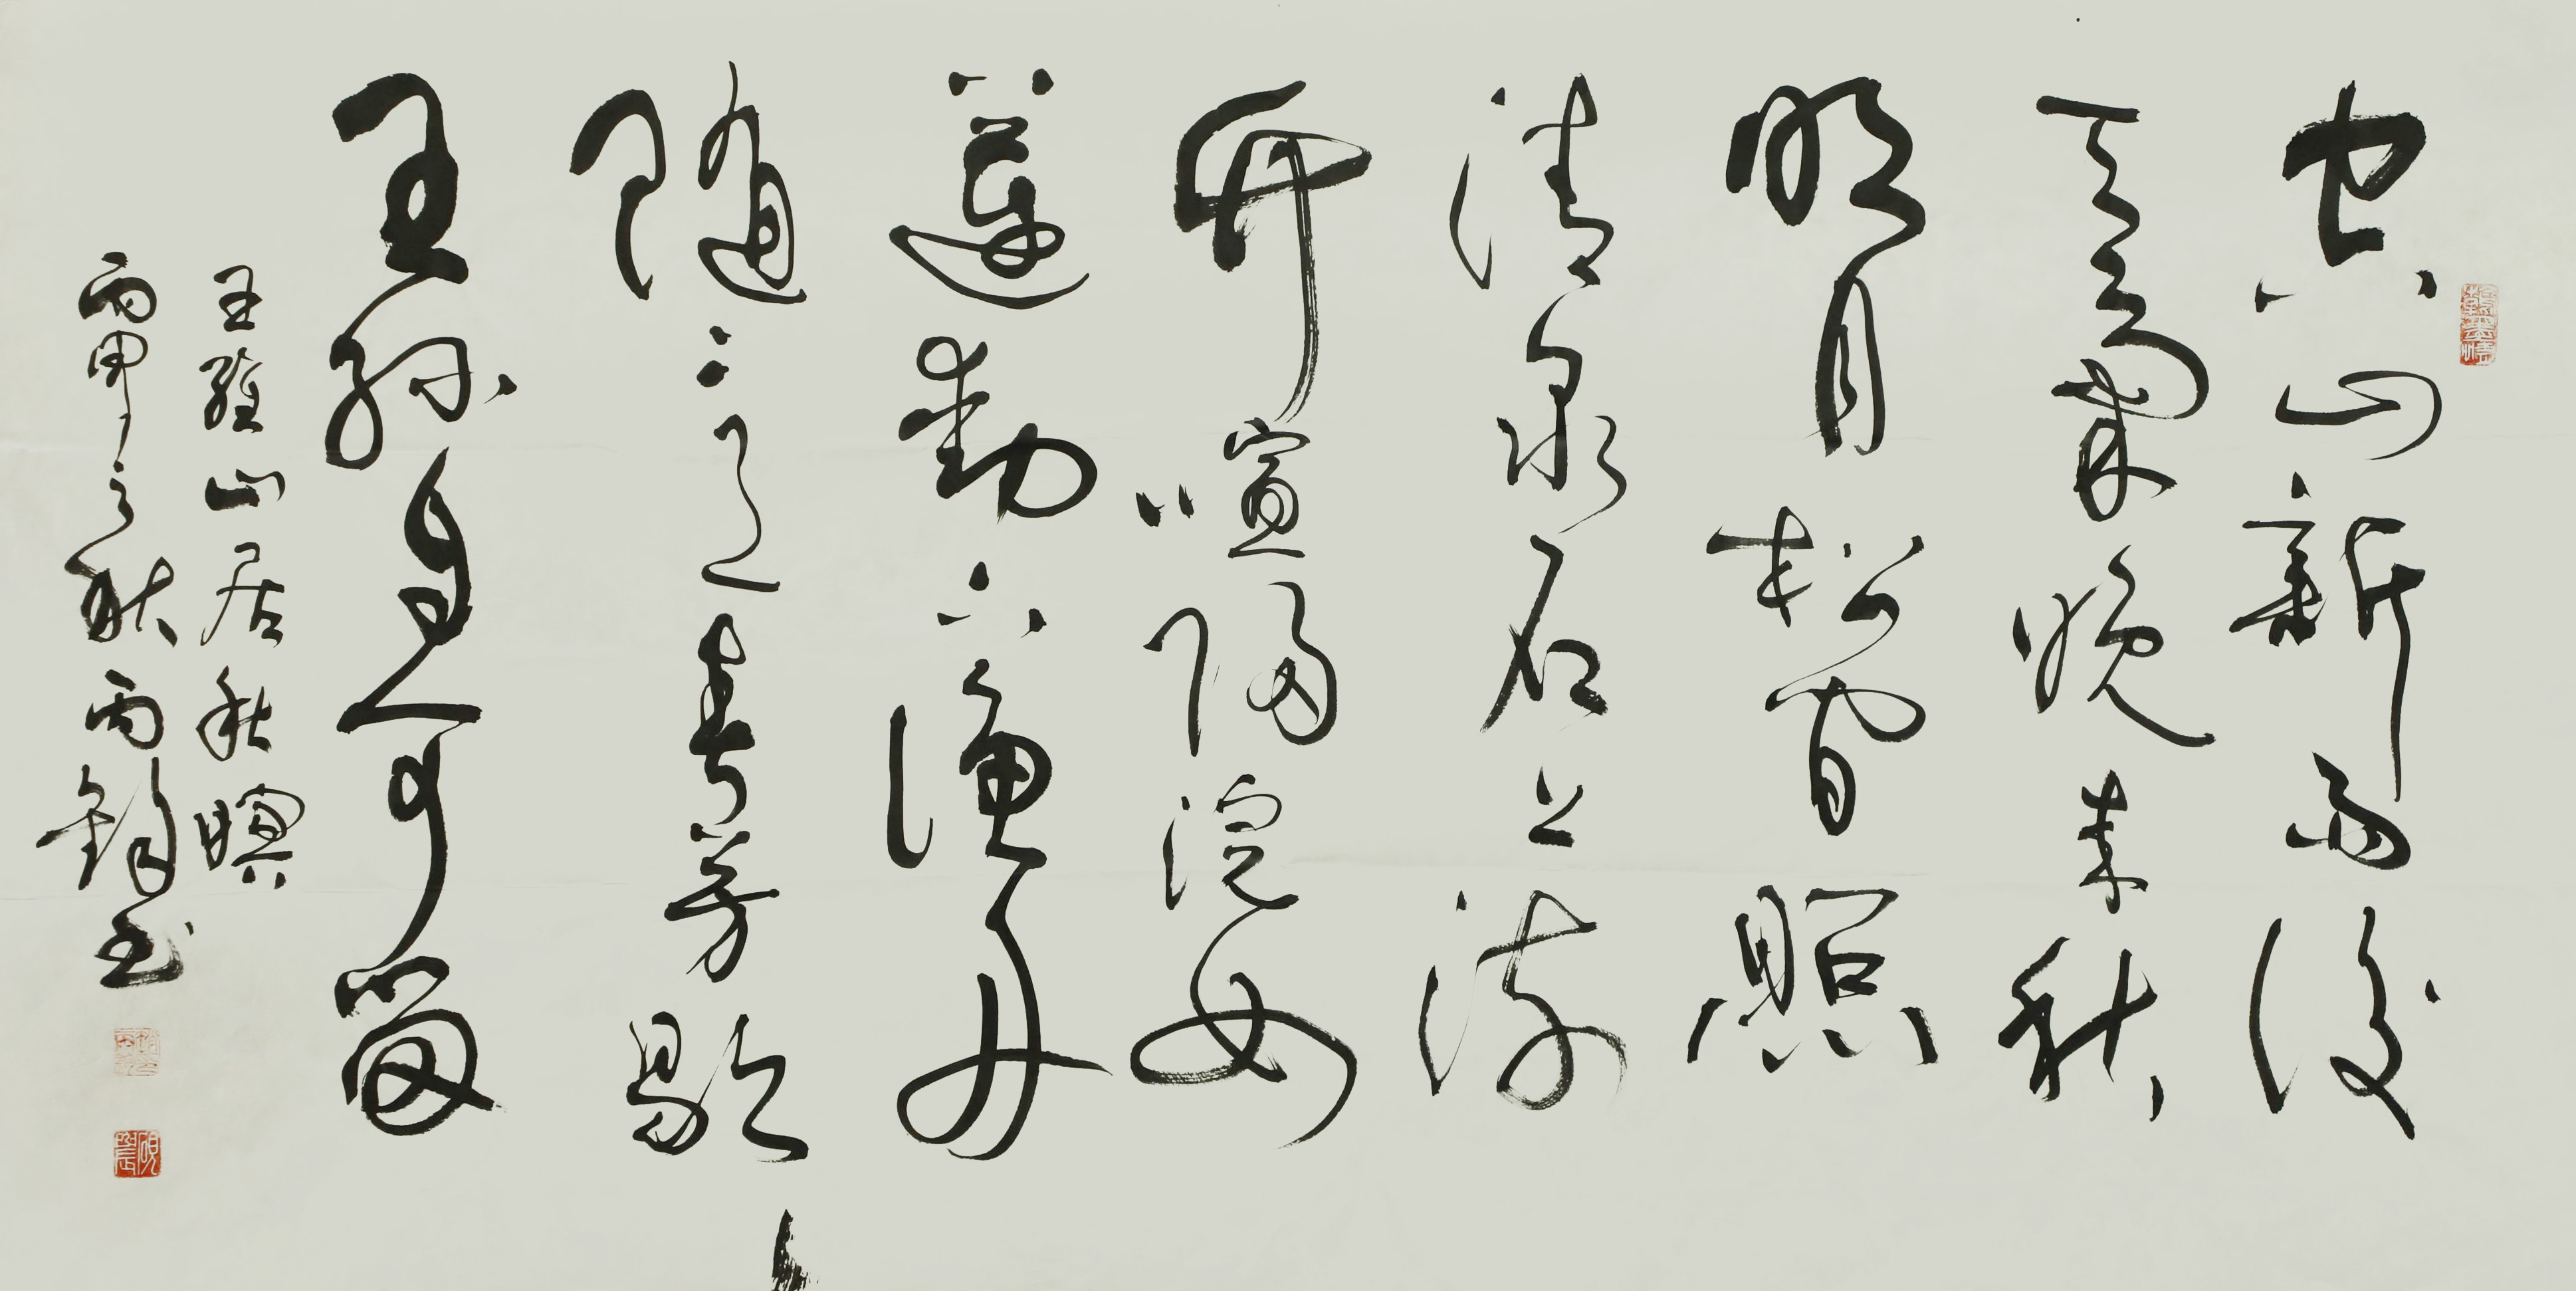 空山新雨後
天氣晚來秋
明月松間照
清泉石上流
竹喧歸浣女
蓮動下漁舟
隨意春芳歇
王孫自可留
王維山居秋暝
丙申之秋丙鈞书